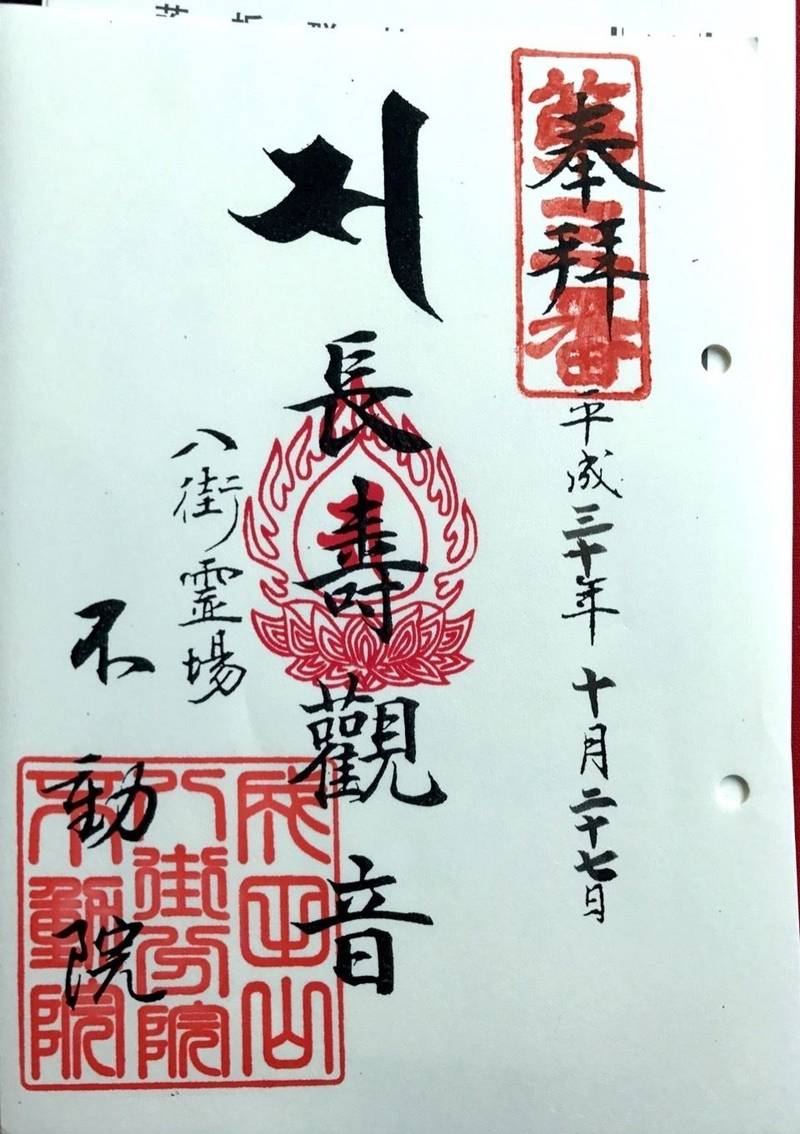 奉拝
平成三十年 十月二十七日
長壽觀音
八街霊場
不動院
成田山
八街分院
不動院